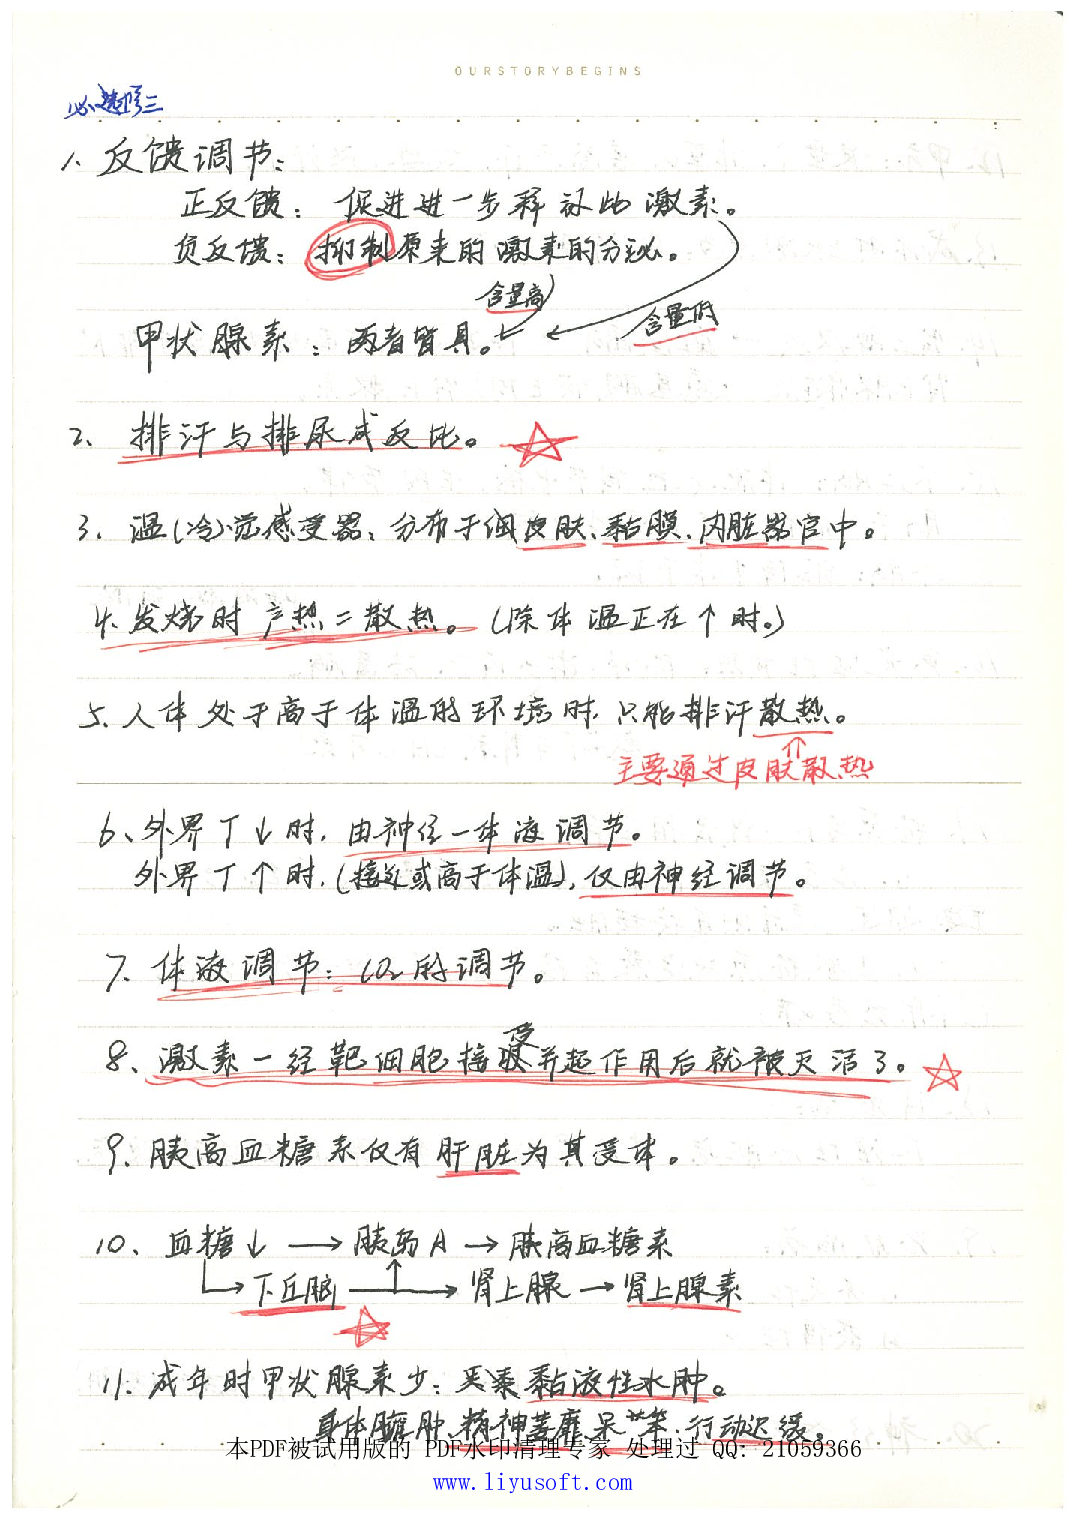 OURSTORYBEGINS
必修三
1. 反馈调节：
正反馈：促进进一步释放此激素。
负反馈：抑制原来的激素的分泌。
含量高
含量低
甲状腺素：两者皆具。
2、排汗与排尿成反比。
3、温(冷)觉感受器：分布于皮肤、黏膜、内脏器官中。
4、发烧时产热=散热。(除体温正在↑时。)
5、人体处于高于体温的环境时，只能排汗散热。
⇑
主要通过皮肤散热
6、外界T↓时，由神经—体液调节。
外界T↑时，(接近或高于体温)，仅由神经调节。
7、体液调节：CO₂的调节。
8、激素一经靶细胞接受并起作用后就被灭活了。
9、胰高血糖素仅有肝脏为其受体。
10、血糖↓→胰岛A→胰高血糖素
↳下丘脑→肾上腺→肾上腺素
11、成年时甲状腺素少：患黏液性水肿。
身体臃肿、精神萎靡、呆笨、行动迟缓。
本PDF被试用版的 PDF水印清理专家 处理过 QQ: 21059366
www.liyusoft.com